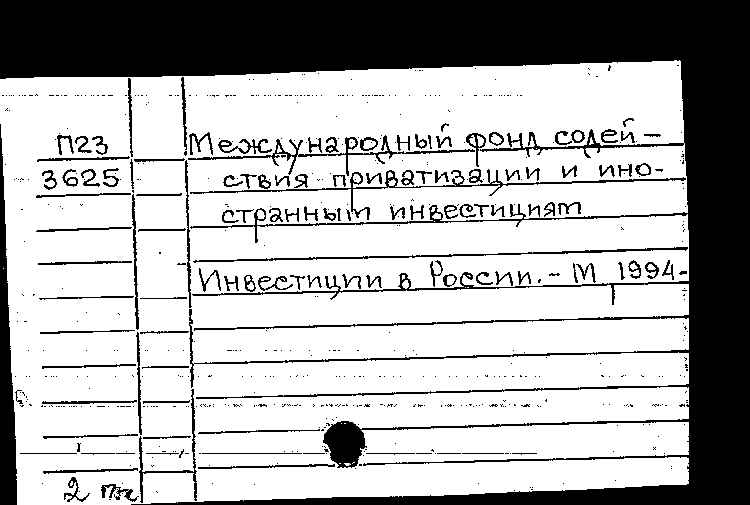 П23 Международный фонд содей-
3625 ствия приватизации и ино-
странным инвестициям
Инвестиции в России. - М 1994-
2